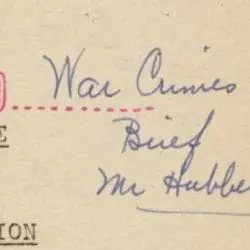 War Crimes
Brief
E
Mr Hubbe
ION